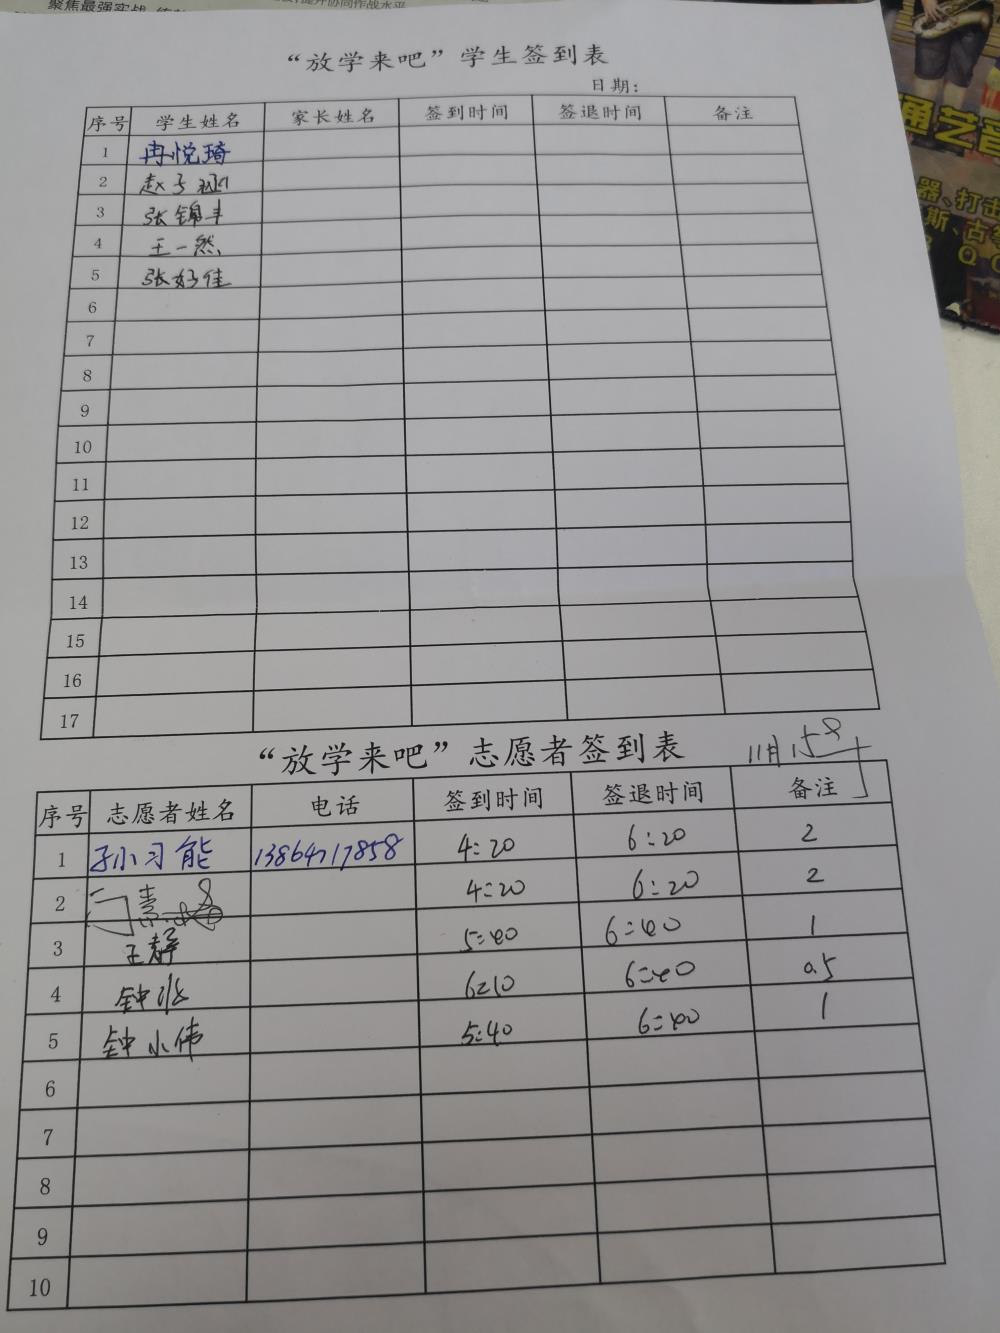 聚焦最强实战
提升协同作战水平
通艺音
器、打击
斯、古筝
Q
“放学来吧”学生签到表
日期：
序号 学生姓名 家长姓名 签到时间 签退时间 备注
1 冉悦琦
2 赵子涵
3 张锦丰
4 王一然
5 张好佳
6
7
8
9
10
11
12
13
14
15
16
17
“放学来吧”志愿者签到表 11月15日
序号 志愿者姓名 电话 签到时间 签退时间 备注
1 孙习能 13864717858 4:20 6:20 2
2 4:20 6:20 2
3 王静 5:40 6:40 1
4 钟张 6:10 6:40 0.5
5 钟小伟 5:40 6:40 1
6
7
8
9
10